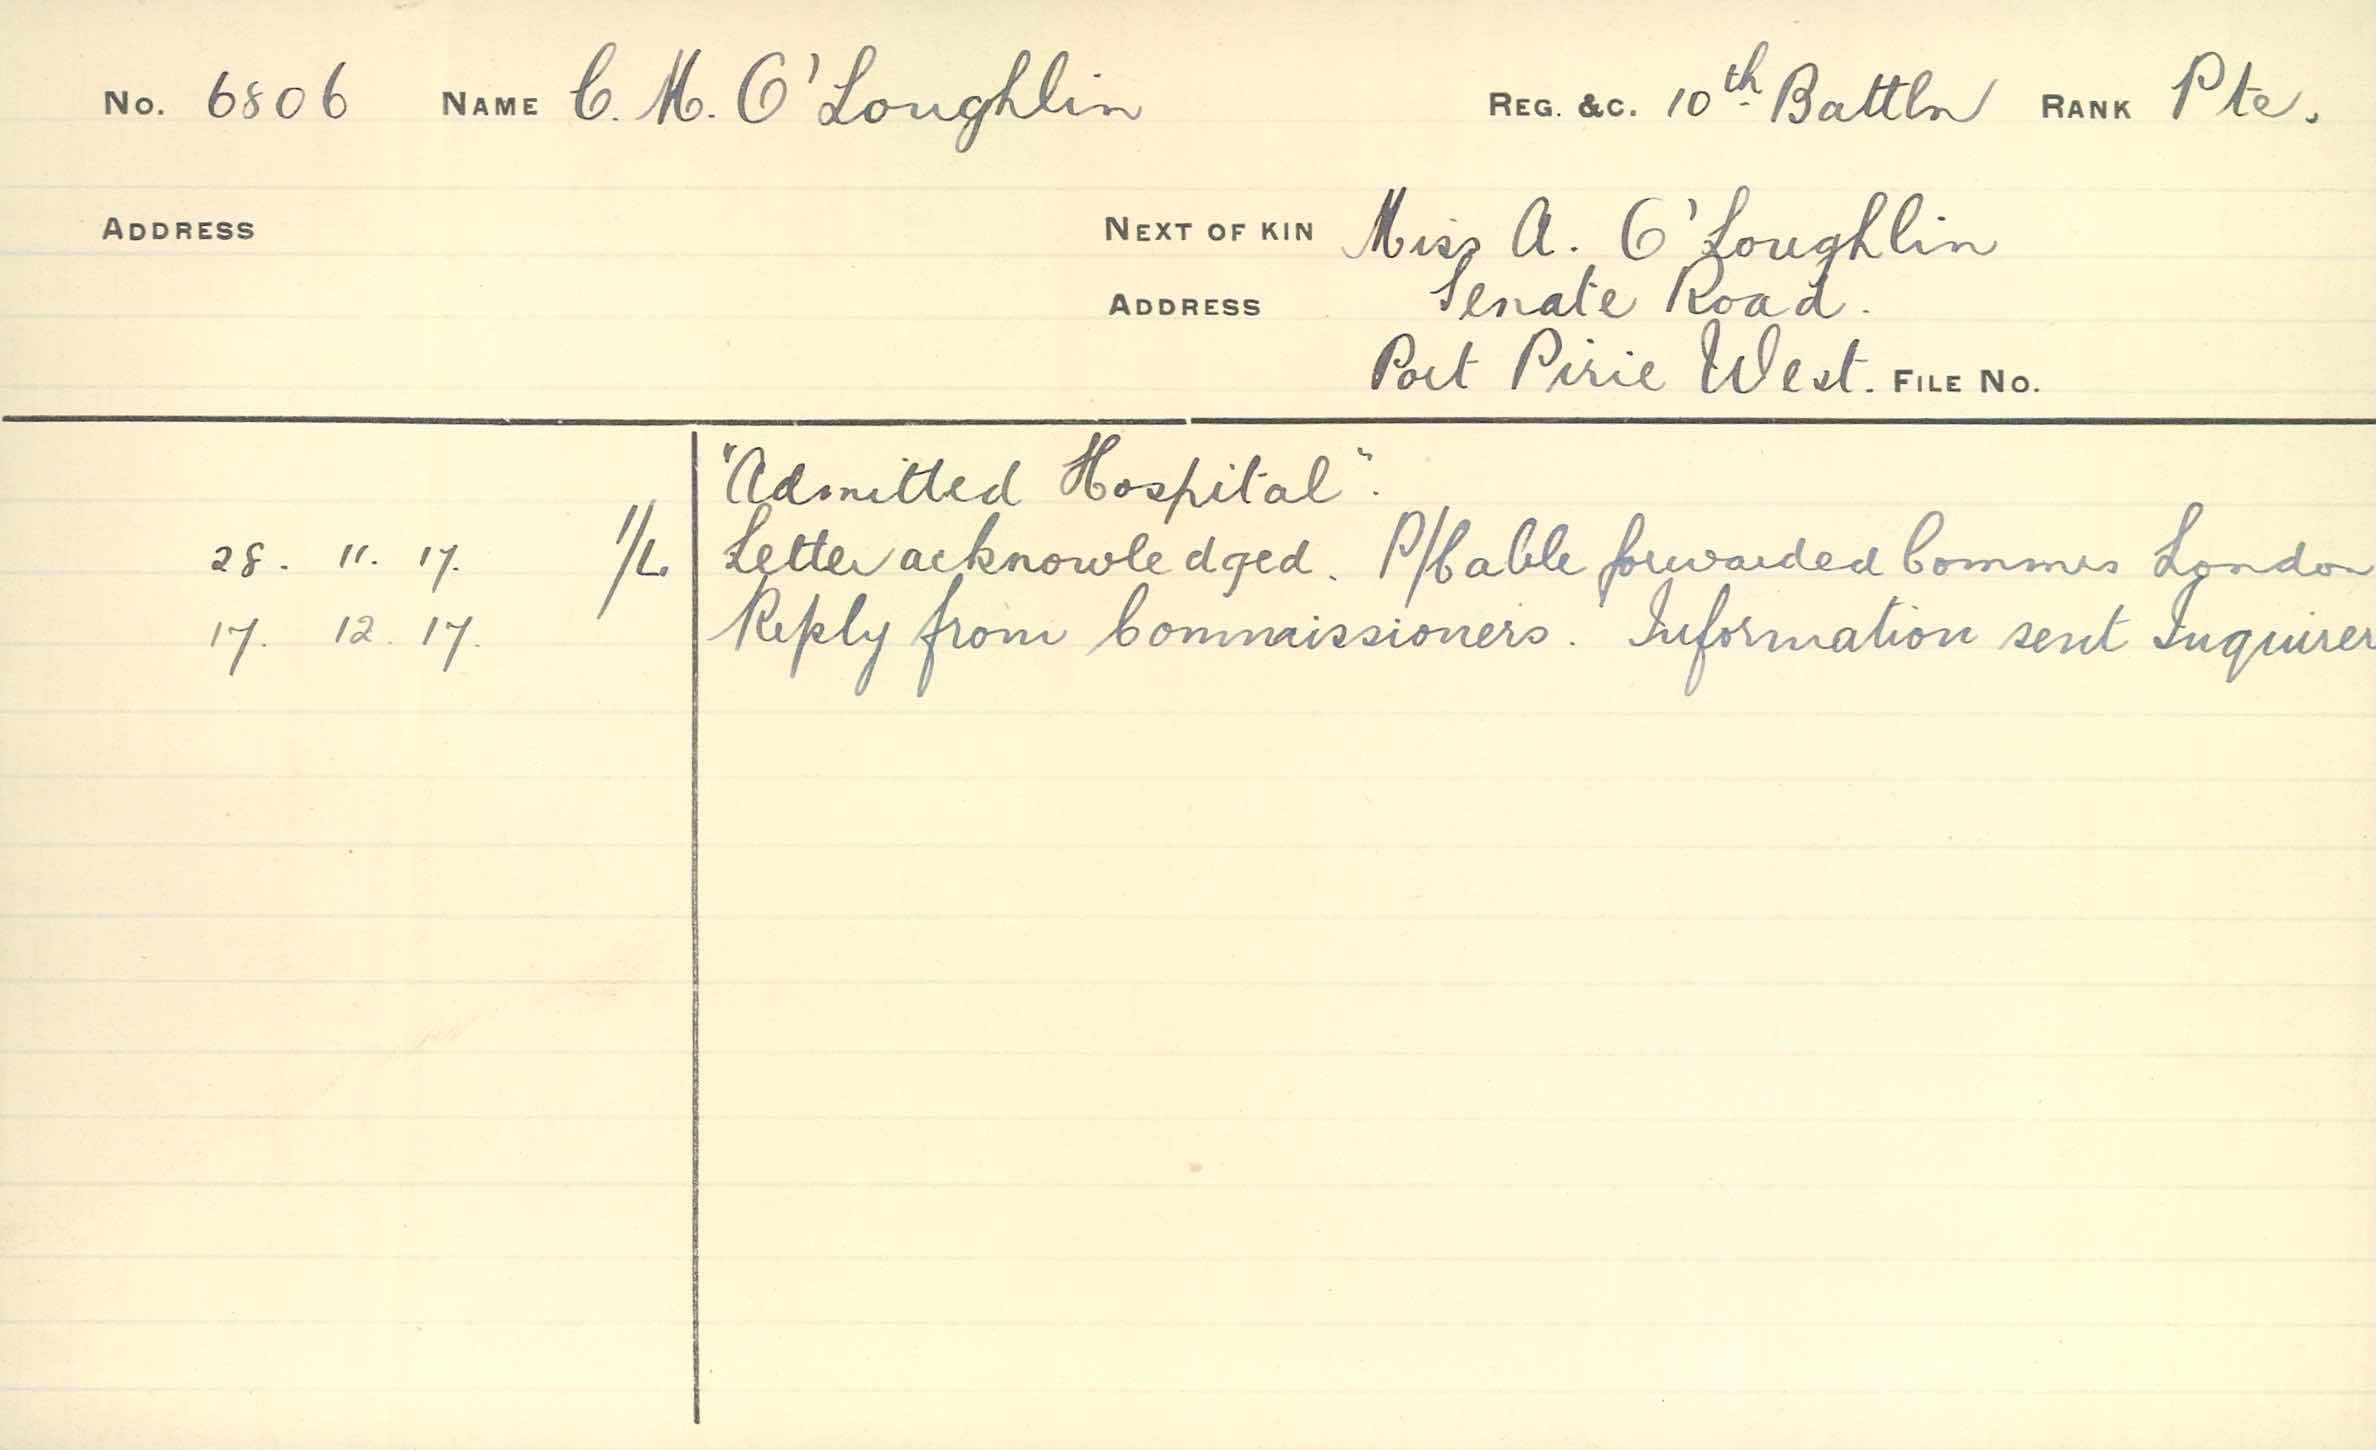 No. 6806 NAME C. M. O'Loughlin REG. &C. 10th Battln RANK Pte.
ADDRESS NEXT OF KIN Miss A. O'Loughlin
ADDRESS Senate Road.
Port Pirie West. FILE No.
"Admitted Hospital".
28. 11. 17. 1/L Letter acknowledged. P/Cable forwarded Commrs London
17. 12. 17. Reply from Commissioners. Information sent Inquirer